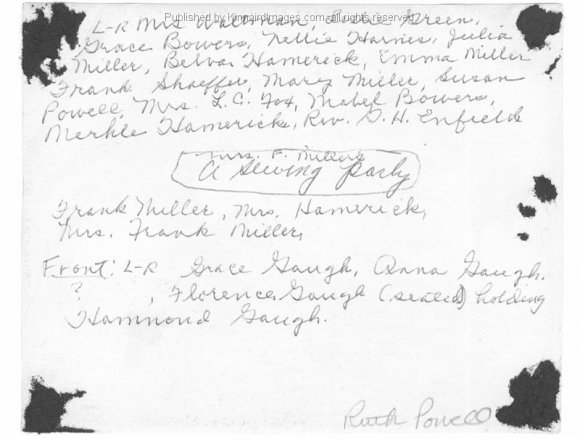 Published by kinnairdimages.com - all rights reserved
L-R Mrs Waltman, Green,
Grace Bowers, Nellie Harnes, Julia
Miller, Belva Hamerick, Emma Miller
Frank Shaeffer, Mary Miller, Susan
Powell, Mrs. L.C. Fox, Mabel Bowers,
Merhle Hamerick, Rev. G. H. Enfield
Mrs. F. Millers
A Sewing party
Frank Miller, Mrs. Hamerick,
Mrs. Frank Miller,
Front: L-R Grace Gaugh, Anna Gaugh,
?, Florence Gaugh (seated) holding
Hammond Gaugh.
Ruth Powell